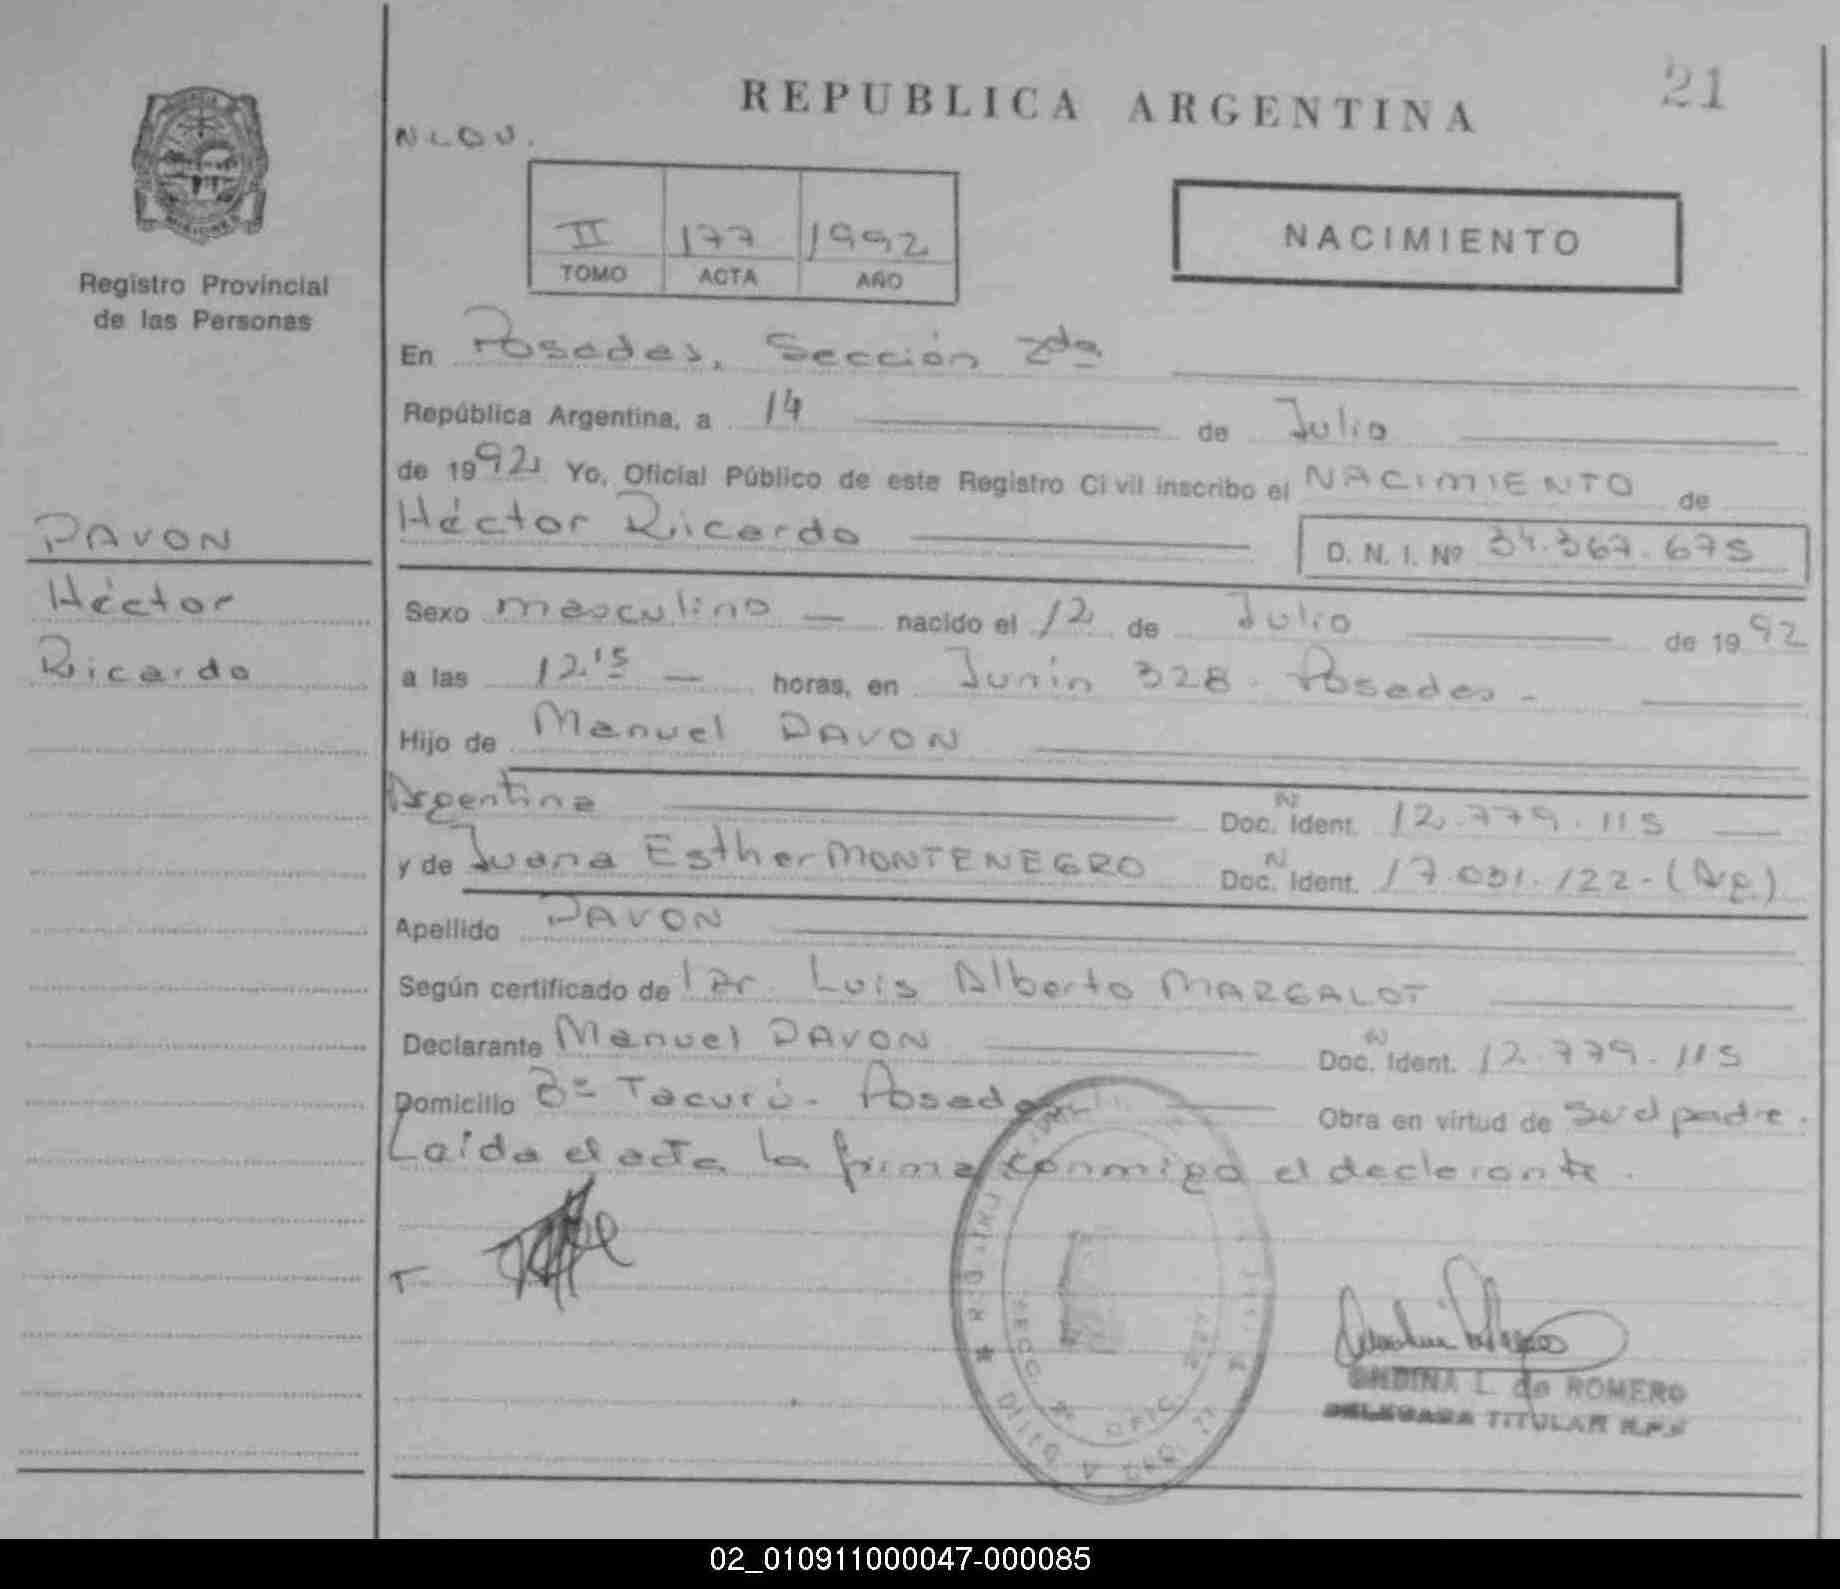 REPUBLICA ARGENTINA
21
Registro Provincial
de las Personas
II 177 1992
TOMO ACTA AÑO
NACIMIENTO
En Posadas, Sección 2da
República Argentina, a 14 de Julio
de 1992 Yo, Oficial Público de este Registro Civil inscribo el NACIMIENTO de
Héctor Ricardo
D. N. I. Nº 34.367.675
PAVON
Héctor
Ricardo
Sexo masculino nacido el 12 de Julio de 1992
a las 12.15 horas, en Junín 328. Posadas.
Hijo de Manuel PAVON
Argentina Doc. N Ident. 12.779.115
y de Juana Esther MONTENEGRO Doc. N Ident. 17.031.122-(Arg.)
Apellido PAVON
Según certificado de Luis Alberto MARGALOT
Declarante Manuel PAVON Doc. N Ident. 12.779.115
Domicilio Bº Tacurú. Posadas Obra en virtud de ser el padre.
Leída el acta la firma conmigo el declarante.
L. de ROMERO
DELEGADA TITULAR R.P.P.
02_010911000047-000085